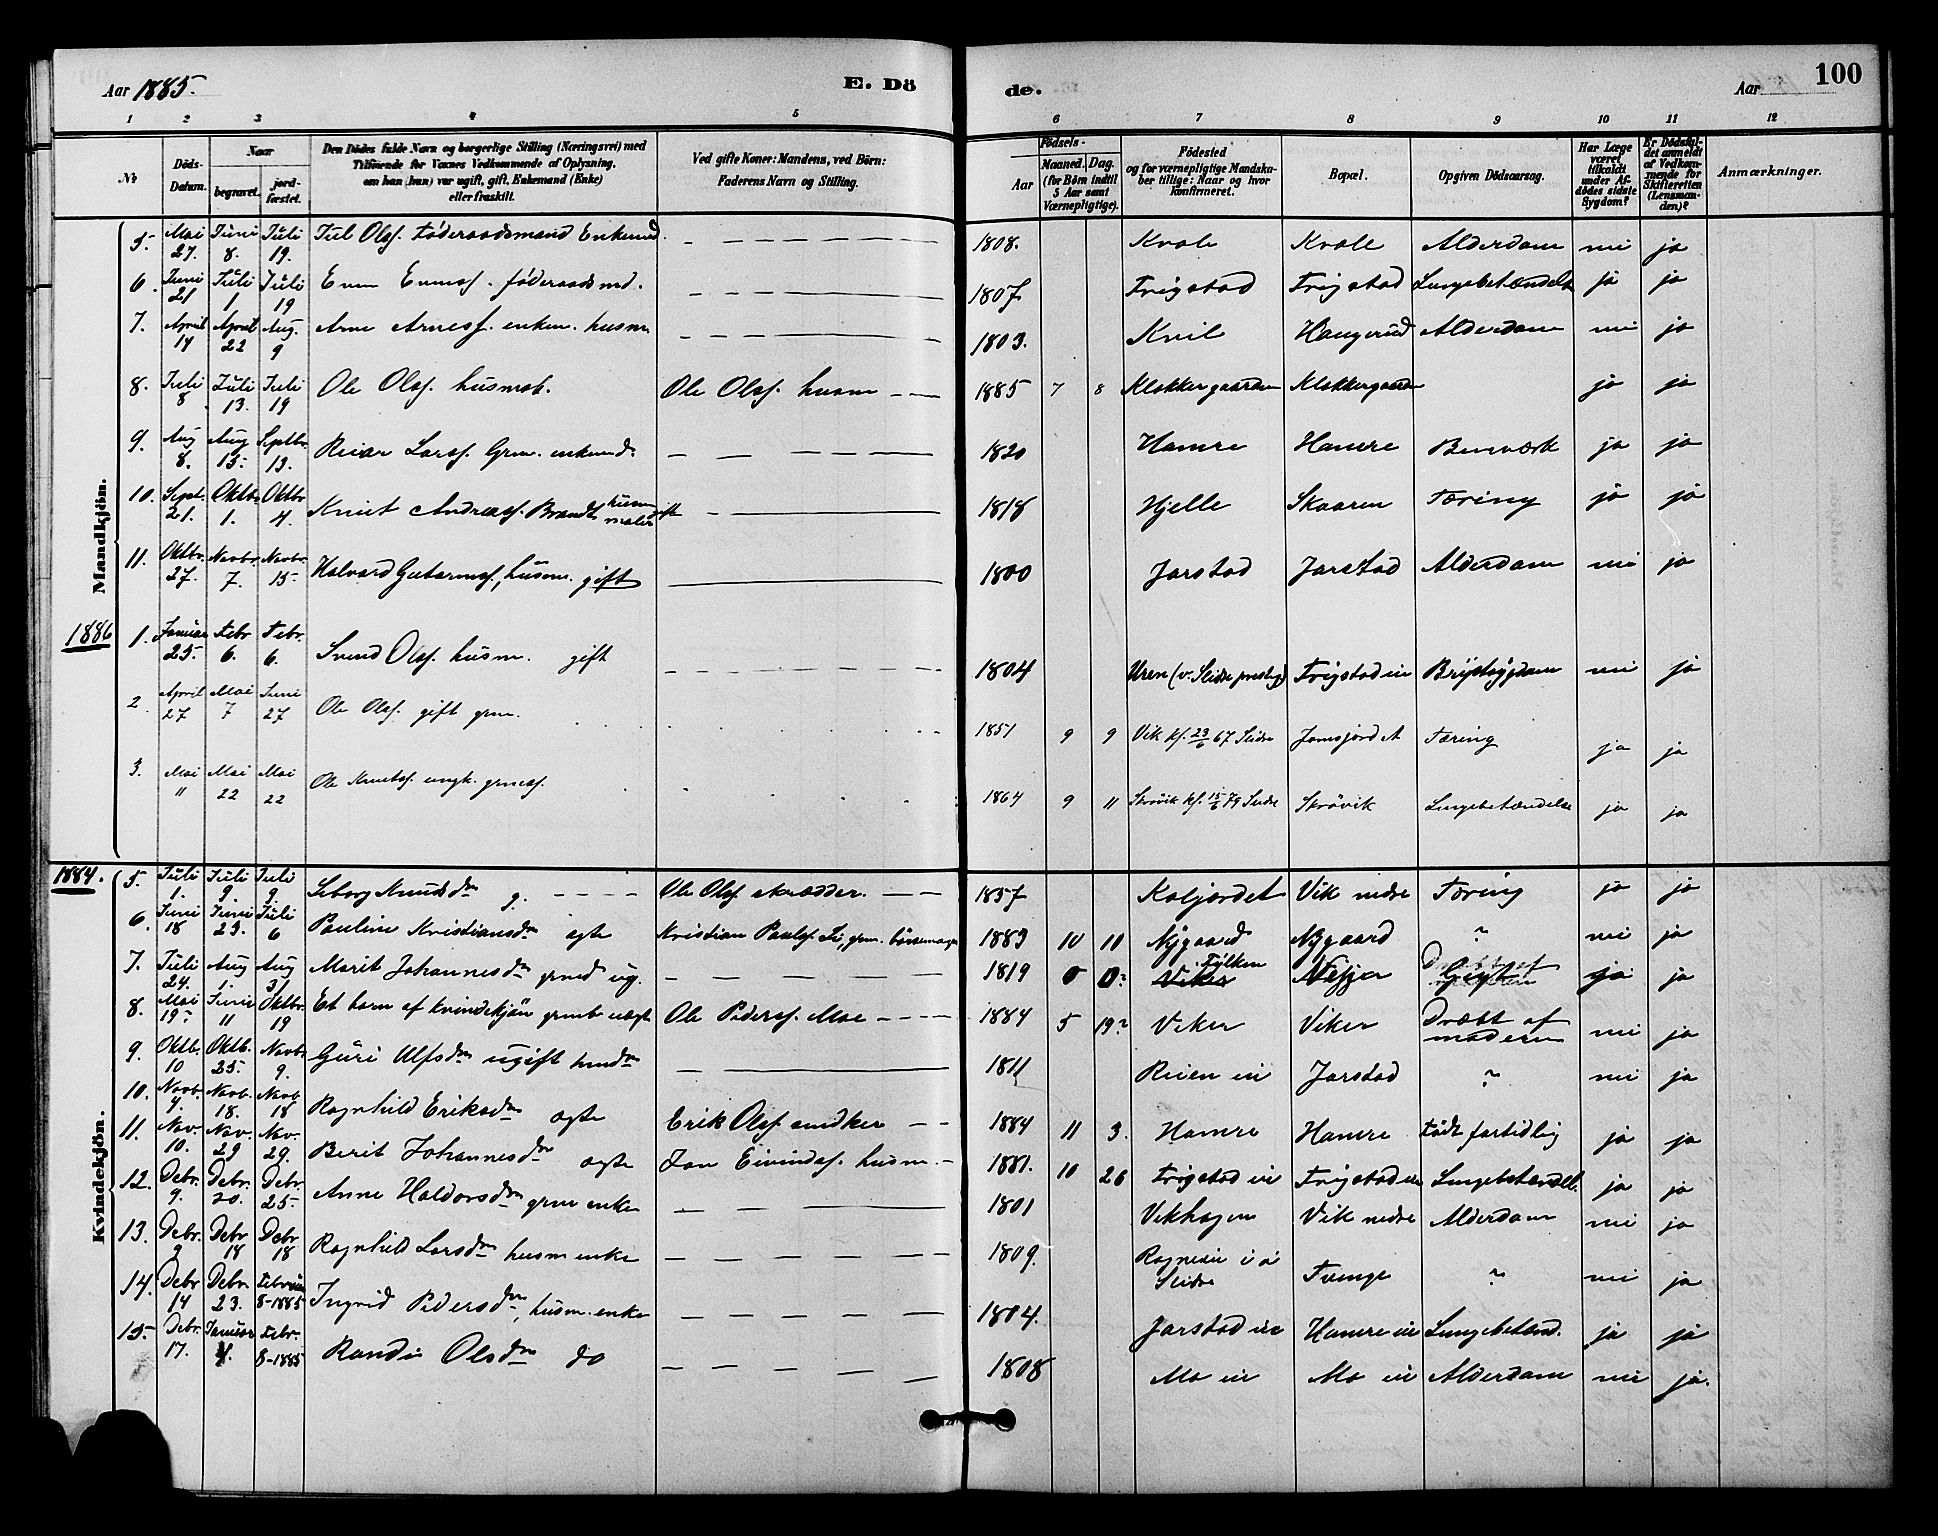 Aar 1885. E. Dö de. Aar 100
1 2 3 4 5 6 7 8 9 10 11 12
No Döds-Datum. Naar begravet. jordfæstet. Den Dödes fulde Navn og borgerlige Stilling (Næringsvei) med Tilföiende for Voxnes Vedkommende af Oplysning, om han (hun) var ugift, gift, Enkemand (Enke) eller fraskilt. Ved gifte Koner: Mandens, ved Börn: Faderens Navn og Stilling. Födsels- Aar Maaned. Dag. (for Börn indtil 5 Aar samt Værnepligtige). Födested og for værnepligtige Mandskaber tillige: Naar og hvor konfirmeret. Bopæl. Opgiven Dödsaarsag. Har Læge været tilkaldt under Afdödes sidste Sygdom? Er Dödsfaldet anmeldt af Vedkommende for Skifteretten (Lensmanden)? Anmærkninger.
Mandkjön.
5. Mai 27. Juni 8. Juli 19. Olsf. Föderaadsmand Enkemd. 1808. Kvale Kvale Alderdom nei ja
6. Juni 21 Juli 1 Juli 19 Even Evensf. föderaadsmd. 1807 Frigstad Frigstad Lungebetændelse ja ja
7. April 14 April 22 Aug. 9 Arne Arnesf. enkem. husm 1803. Kvil Haugerud Alderdom nei ja
8. Juli 8 Juli 13. Juli 19 Ole Olsf. husmsb. Ole Olsf. husm 1885 7 8 Klokkergaarden Klokkergaarden ja ja
9. Aug 8. Aug 15. Septbr. 13. Reiar Larsf. Grm. enkemd. 1820 Hamre Hamre Benværk ja ja
10. Sept. 21. Oktbr 1. Oktbr 4. Knut Andreasf. Brandt husm maler gift 1818 Hjelle Skaaren Tæring ja ja
11. Oktbr. 27. Novbr. 7. Novbr. 15 Halvard Guttormsf., husm. gift 1800 Jarstad Jarstad Alderdom nei ja
1886 1. Januar 25. Febr 6. Febr. 6. Svend Olsf. husm. gift 1804 Uren (v. Slidre prestegj) Frigstad eie Brystsygdom nei ja
2. April 27 Mai 7 Juni 27 Ole Olsf. gift grm. 1851 9 9 Vik kf. 23/6 67 Slidre Tæring ja ja
3. Mai 11 Mai 22 Mai 22 Ole Knutsf. ungk. grmesf. 1864 9 11 Skrövik kf. 15/6 79 Slidre Skrövik Lungebetændelse ja ja
Kvindekjön.
1884. 5. Juli 1. Juli 9. Juli 9. Siborg Knudsdr g. Ole Olsf. skrædder. 1857 Koljordet Vik nedre Tæring ja ja
6. Juni 18 Juni 23. Juli 6 Pauline Kristiansdr ægte Kristian Paulsf. Li, grm. bössemager 1883 10 10 Nygaard Nygaard " nei ja
7. Juli 24. Aug 1. Aug 31 Marit Johannesdr grmd ug. 1819 0 0? Viker Fylken Gigt ja ja
8. Mai 19? Juni 11 Oktbr. 19 Et barn af kvindekjön uægte Ole Pedersf. Moe 1884 5 19? Viker Viker Dræbt af moderen nei ja
9. Oktb. 10 Oktb. 25. Novbr. 9. Guri Ulfsdr ugift 1811 Reien eie Jarstad " nei ja
10. Novb. 4. Novb. 18. Novb 18 Ragnhild Eriksdr ægte Erik Olsf. 1884 11 3. Hamre Hamre Födt fortidlig ja ja
11. Nov. 10. Nov. 29 Nov. 29. Berit Johannesdr ægte Jon Eivindsf. husm. 1881. 10 26 Frigstad eie Frigstad eie Lungebetændel. ja ja
12. Debr. 9. Debr. 20. Debr. 25. Anne Haldorsdr grm enke 1801 Vikhagen Vik nedre Alderdom nei ja
13. Debr. 9 Debr 18 Debr 18 Ragnhild Larsdr husm enke 1809. Slidre Tvenge " nei ja
14. Debr 14 Debr. 23. Februar 8-1885 Ingrid Pedersdr, husm. enke 1804. Jarstad eie Hamre eie Lungebetænd. ja ja
15. Debr. 17. Januar 4. Febr. 8-1885 Randi Olsdr do 1808 Mo eie Mo eie Alderdom nei ja.